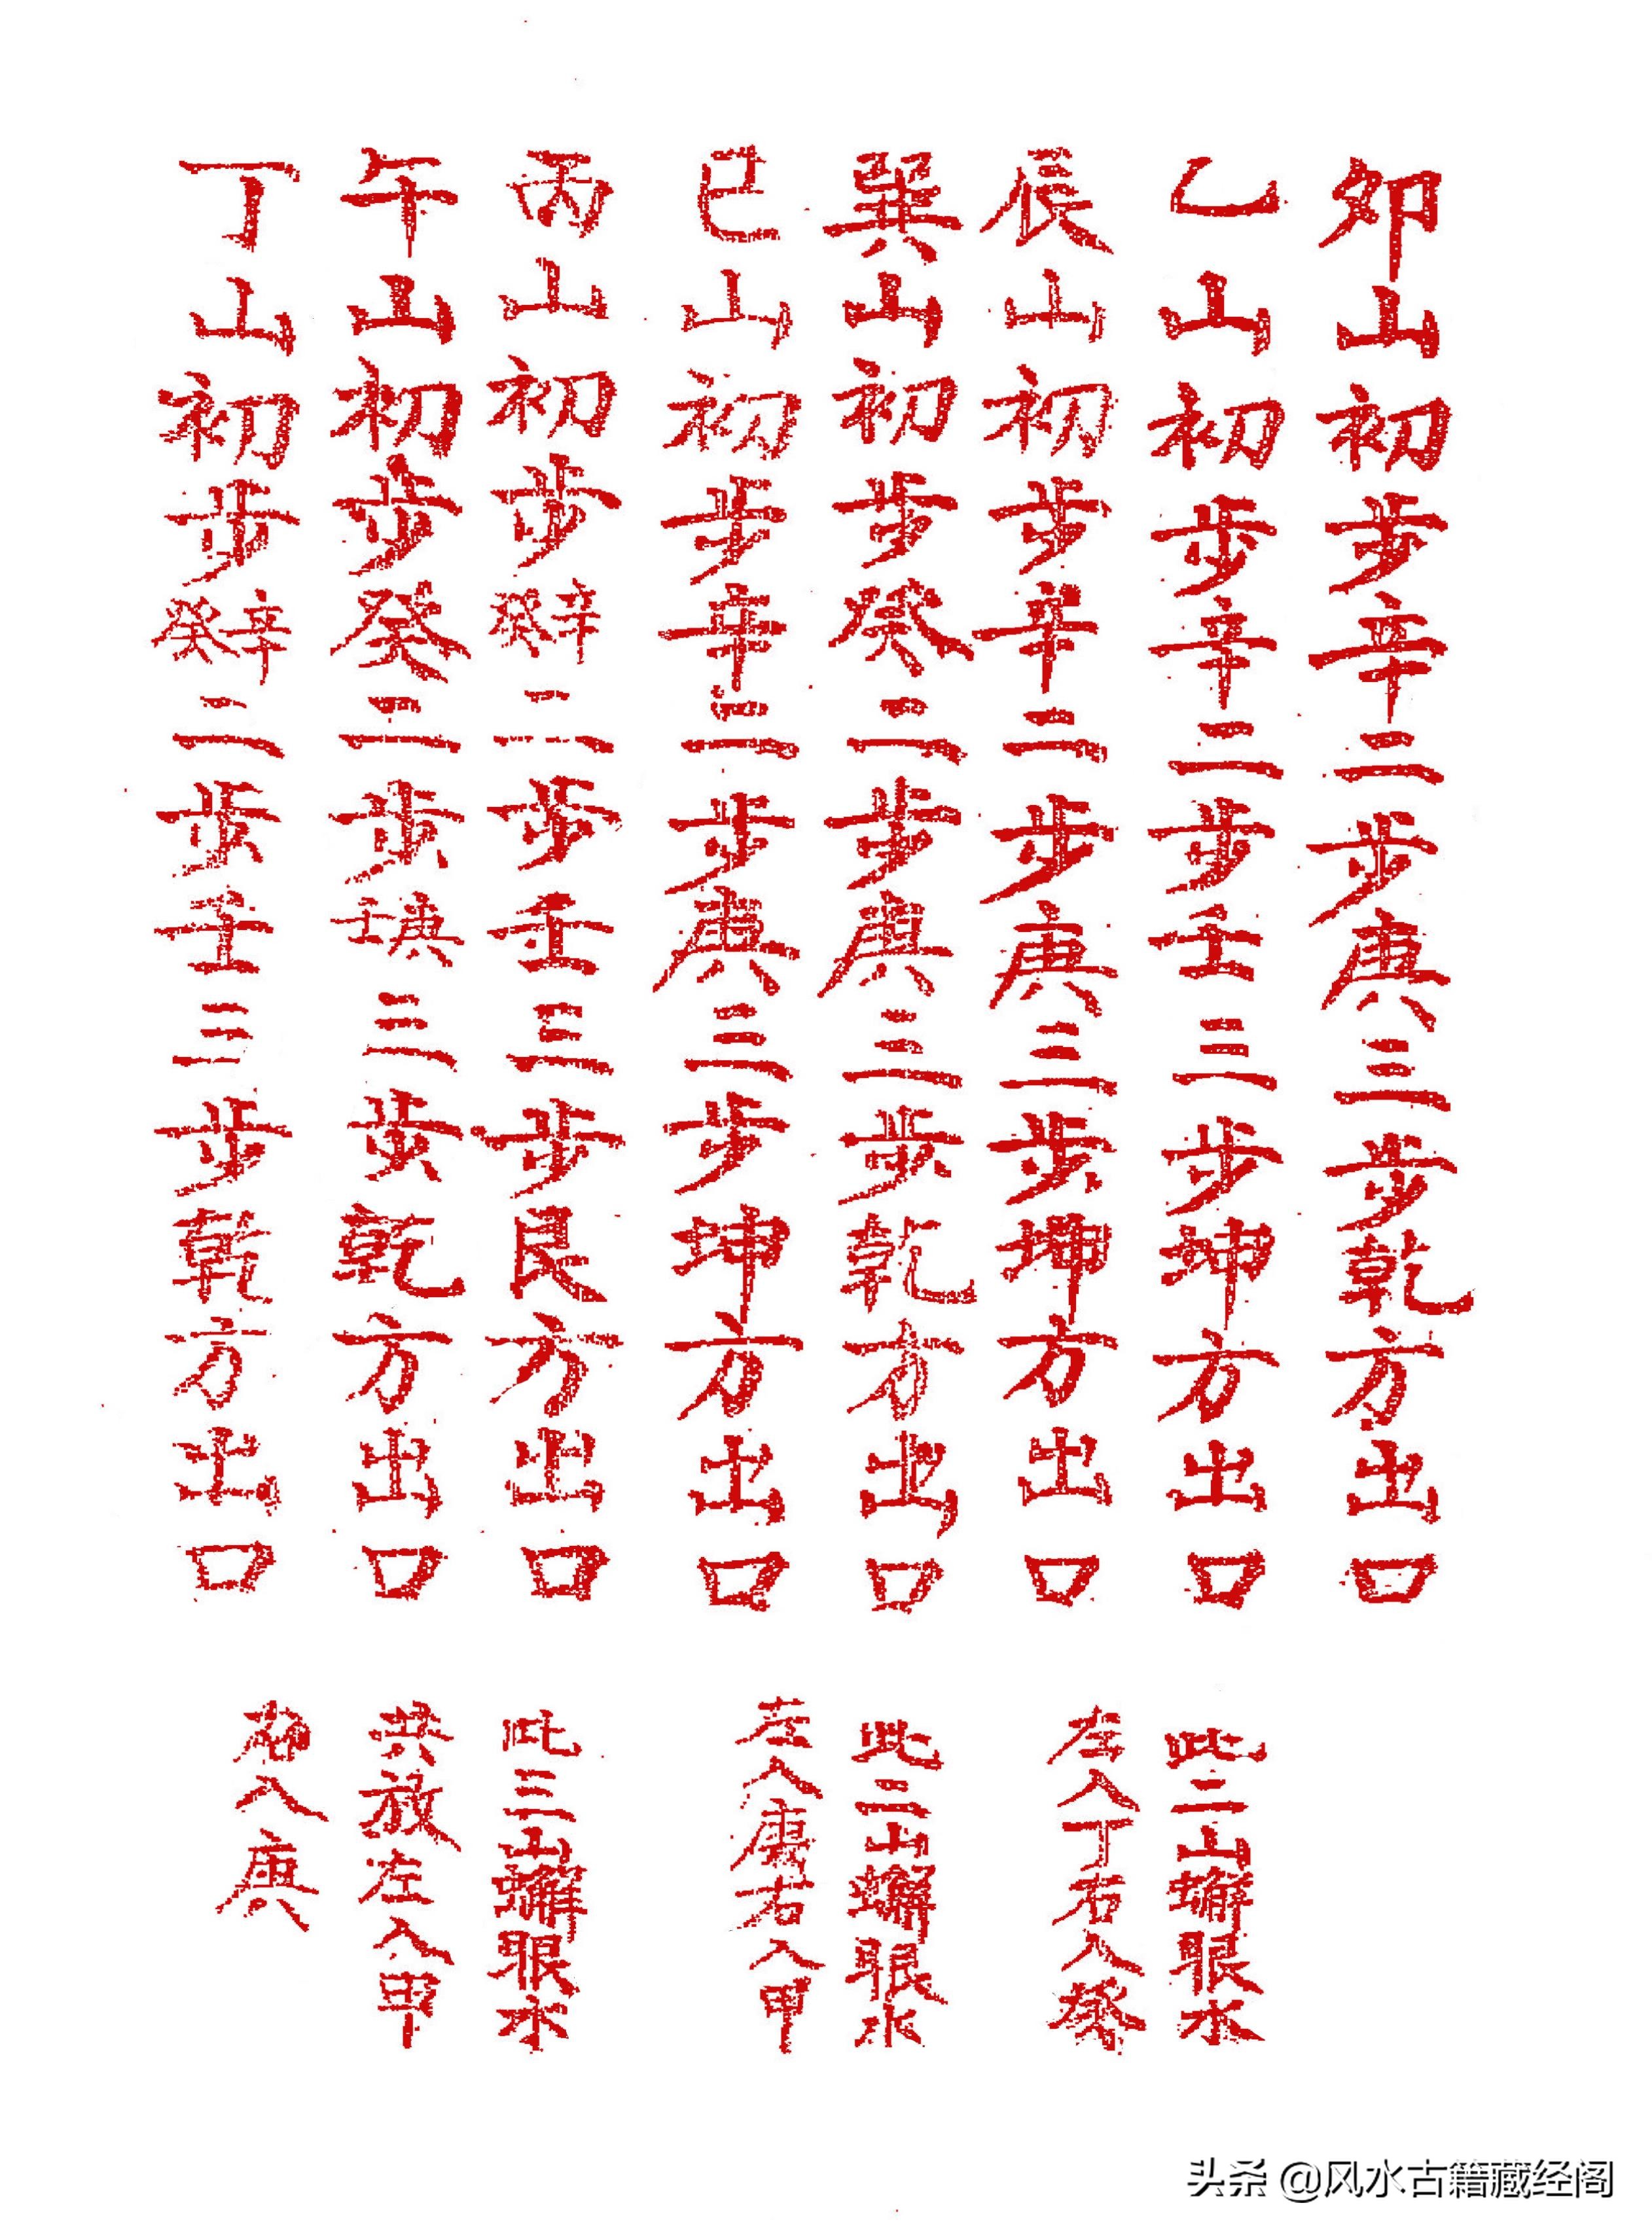 卯山初步辛二步庚三步乾方出口
乙山初步辛二步壬三步坤方出口
辰山初步辛二步庚三步坤方出口
巽山初步癸二步庚三步乾方出口
巳山初步辛二步庚三步坤方出口
丙山初步辛癸二步壬三步艮方出口
午山初步癸二步庚壬三步乾方出口
丁山初步辛癸二步壬三步乾方出口
此二山蠏眼水
左入丁右入癸
此二山蠏眼水
左入庚右入甲
此三山蠏眼水
共放左入甲
右入庚
头条 @风水古籍藏经阁